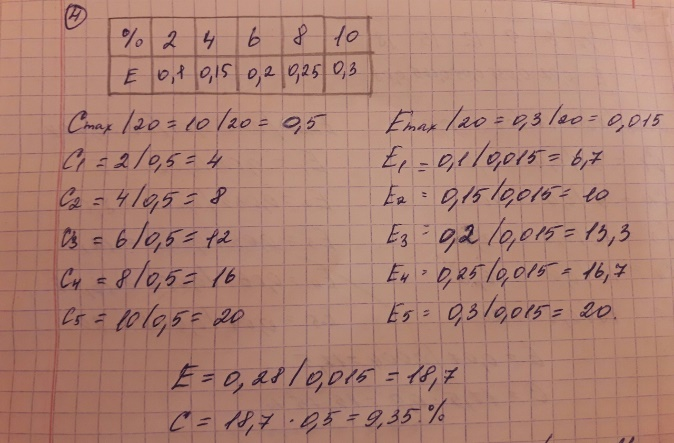 4
% 2 4 6 8 10
E 0,1 0,15 0,2 0,25 0,3
Cmax /20 = 10 /20 = 0,5
C1 = 2/0,5 = 4
C2 = 4/0,5 = 8
C3 = 6/0,5 = 12
C4 = 8/0,5 = 16
C5 = 10/0,5 = 20
Emax /20 = 0,3/20 = 0,015
E1 = 0,1/0,015 = 6,7
E2 = 0,15/0,015 = 10
E3 = 0,2/0,015 = 13,3
E4 = 0,25/0,015 = 16,7
E5 = 0,3/0,015 = 20.
E = 0,28/0,015 = 18,7
C = 18,7 · 0,5 = 9,35 %